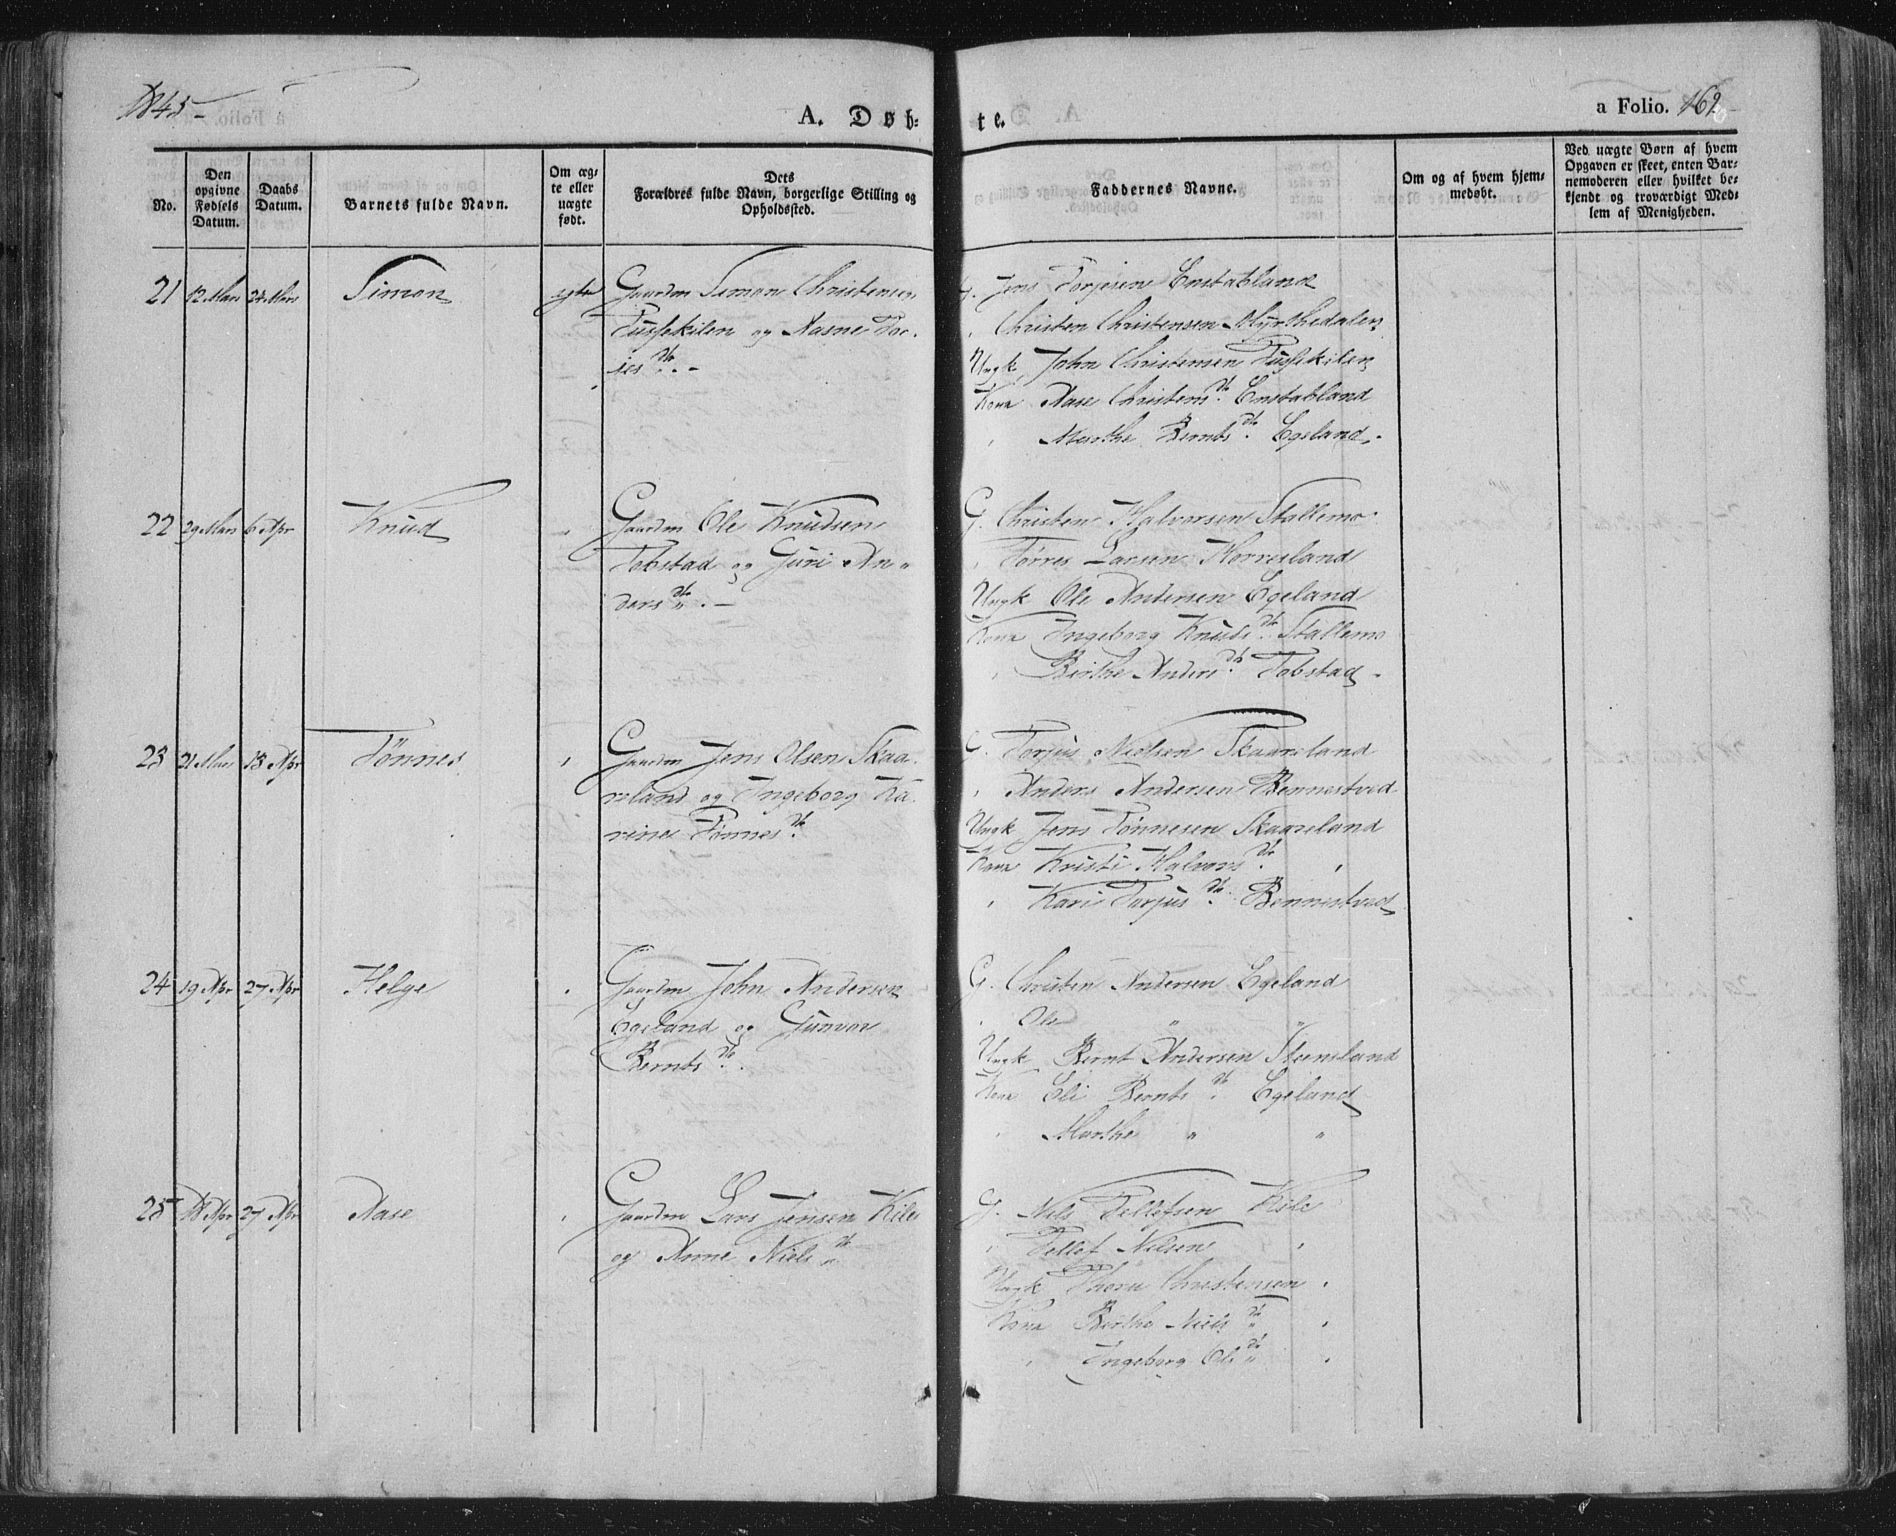 1845
A. Døb-
te.
a Folio. 162
No.
Den opgivne Fødsels Datum.
Daabs Datum.
Barnets fulde Navn.
Om ægte eller uægte født.
Dets Forældres fulde Navn, borgerlige Stilling og Opholdssted.
Faddernes Navne.
Om og af hvem hjemmedøbt.
Ved uægte Børn af hvem Opgaven er skeet, enten Barnemoderen eller hvilket bekjendt og troværdigt Medlem af Menigheden.
21 12 Mars 24 Mars Simon ægte Gaardm Simon Christensen
Tussekilen og Aasne Tor-
jesdtr.
G. Jens Torjesen Enstabland
" Christen Christensen Myrthedalen
Ungk John Christensen Tussekilen
Kone Aase Christensdtr. Enstabland
" Marthe Berntsdtr. Egeland.
22 29 Mars 6 Apr Knud " Gaardm Ole Knudsen
Tobstad og Guri An-
dersdtr.
G. Christen Halvorsen Stallemo
" Tørres Larsen Horresland
Ungk Ole Andersen Egeland
Kone Ingeborg Knutsdtr. Stallemo
" Birthe Andersdtr. Tobstad.
23 21 Mars 13 Apr Tønnes " Gaardm Jens Olsen Skaa-
reland og Ingeborg Ka-
rine Tønnesdtr.
G. Torjus Nielsen Skaareland
" Anders Andersen Bennestved
Ungk Jens Tønnesen Skaareland
Kone Kristi Halvorsdtr. "
" Kari Torjusdtr. Bennestved
24 19 Apr 27 Apr Helge " Gaardm John Andersen
Egeland og Gunvor
Berntsdtr.
G. Christen Andersen Egeland
" Ole " "
Ungk Bernt Andersen Steensland
Kone Eli Berntsdtr. Egeland
" Marthe " "
25 18 Apr 27 Apr Aase " Gaardm Lars Jensen Kile
og Anne Nielsdtr
G. Nils Tellefsen Kile
" Tellef Nilsen "
Ungk Christensen "
Kone Berthe Nielsdtr "
" Ingeborg Olsdtr "